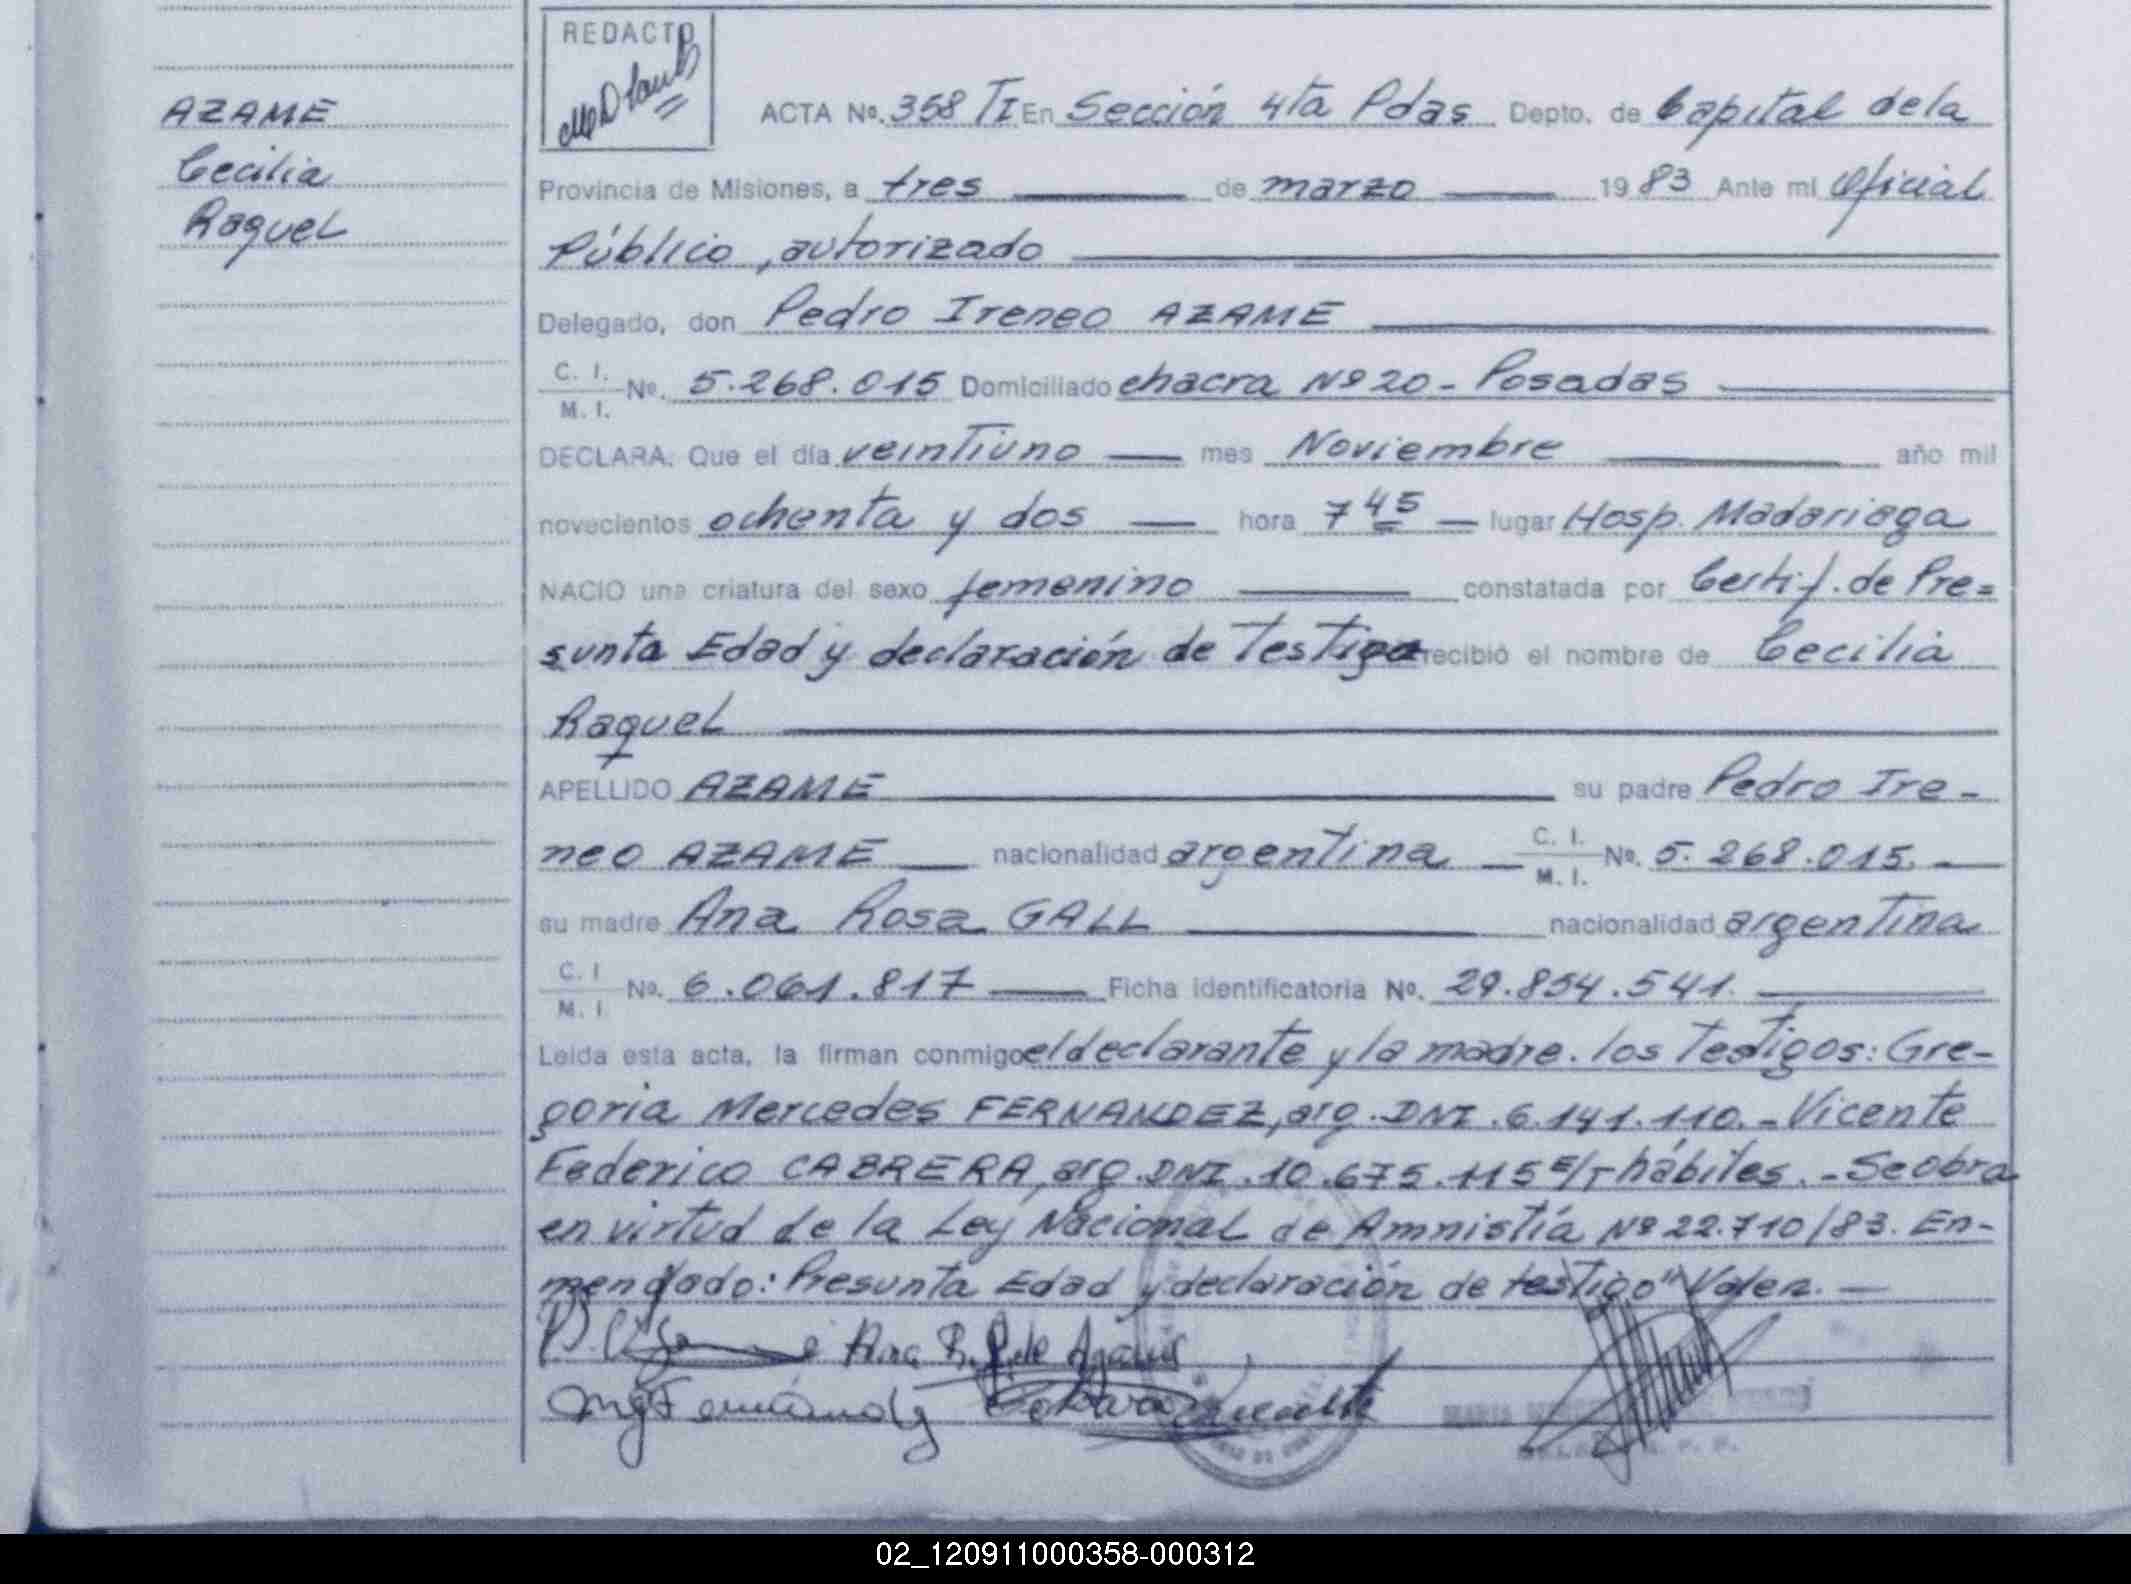 AZAME
Cecilia
Raquel
REDACTO
ACTA No. 358 TI En Sección 4ta Pdas Depto. de Capital de la
Provincia de Misiones, a tres de marzo 1983 Ante mi Oficial
Público, autorizado
Delegado, don Pedro Ireneo AZAME
C. I.
M. I. No. 5.268.015 Domiciliado chacra Nº 20 - Posadas
DECLARA: Que el día veintiuno mes Noviembre año mil
novecientos ochenta y dos hora 7 45 lugar Hosp. Madariaga
NACIO una criatura del sexo femenino constatada por Certif. de Pre=
sunta Edad y declaración de Testigo recibió el nombre de Cecilia
Raquel
APELLIDO AZAME su padre Pedro Ire-
neo AZAME nacionalidad argentina C. I. M. I. No. 5.268.015.
su madre Ana Rosa GALL nacionalidad argentina
C. I M. I No. 6.061.817 Ficha identificatoria No. 29.854.541.
Leida esta acta, la firman conmigo el declarante y la madre. los Testigos: Gre-
goria Mercedes FERNANDEZ, arg. DNI. 6.141.110.- Vicente
Federico CABRERA, arg. DNI. 10.675.115 E/T hábiles.- Se obra
en virtud de la Ley Nacional de Amnistía Nº 22.710/83. En-
mendado: Presunta Edad y declaración de testigo" Valen.
Ana R. G. de Azame
Fernández
02_120911000358-000312